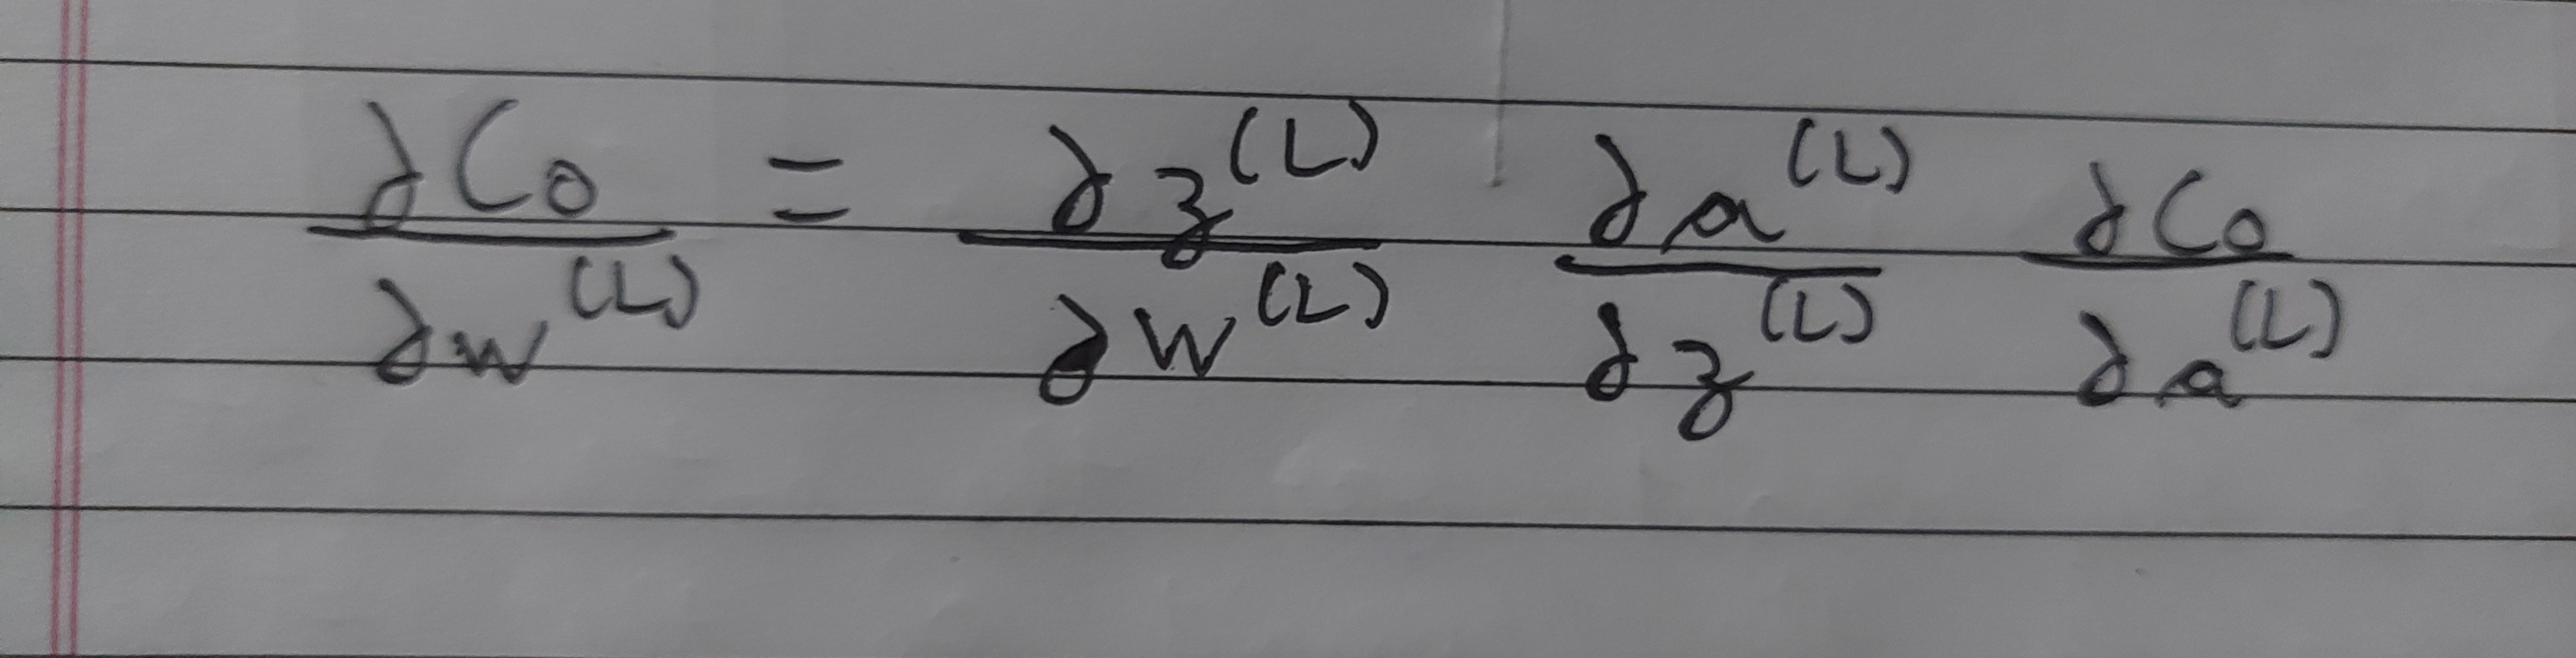 ∂C₀/∂w^(L) = ∂z^(L)/∂w^(L) ∂a^(L)/∂z^(L) ∂C₀/∂a^(L)